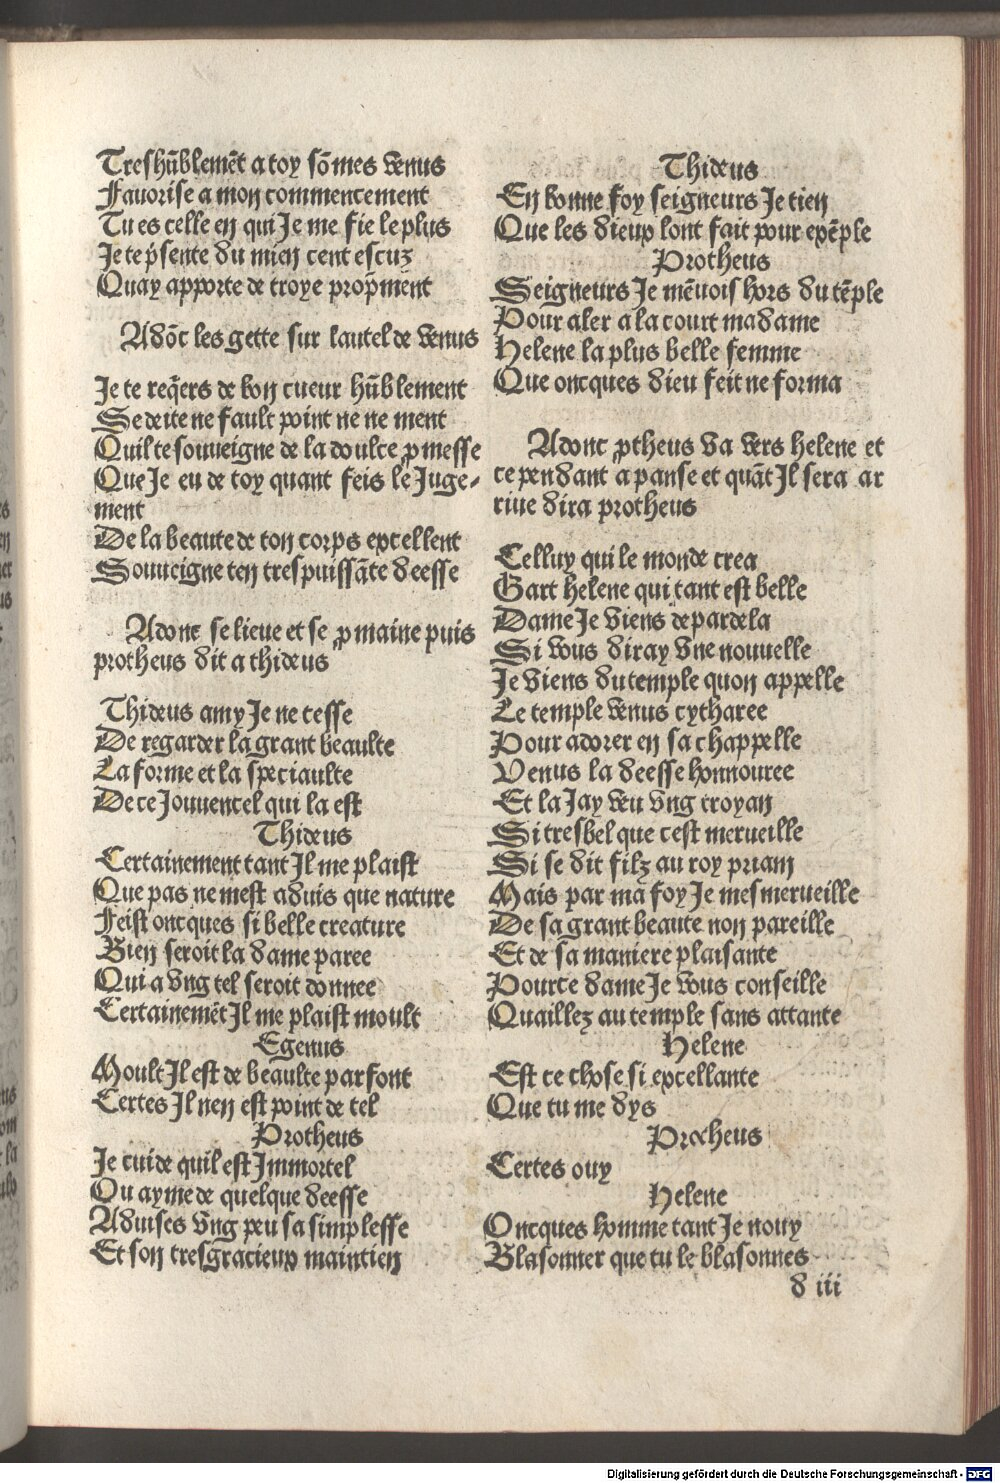 Treshūblemēt a toy sōmes venus
Fauorise a mon commencement
Tu es celle en qui Je me fie le plus
Je te p̄sente du mien cent escuz
Quay apporte de troye prop̄ment
Adōc les gette sur lautel de venus
Je te req̄ers de bon cueur hūblement
Se deite ne fault point ne ne ment
Quil te souueigne de la doulce ꝓmesse
Que Je eu de toy quant feis le Juge-
ment
De la beaute de ton corps excellent
Souueigne ten trespuissāte deesse
Adonc se lieue et se ꝓmaine puis
protheus dit a thideus
Thideus amy Je ne cesse
De regarder la grant beaulte
La forme et la speciaulte
De ce Jouuencel qui la est
Thideus
Certainement tant Il me plaist
Que pas ne mest aduis que nature
Feist oncques si belle creature
Bien seroit la dame paree
Qui a vng tel seroit donnee
Certainemēt Il me plaist moult
Egenus
Moult Il est de beaulte parfont
Certes Il nen est point de tel
Protheus
Je cuide quil est Immortel
Ou ayme de quelque deesse
Aduises vng peu sa simplesse
Et son tresgracieux maintien
Thideus
En bonne foy seigneurs Je tien
Que les dieux lont fait pour exēple
Protheus
Seigneurs Je mēuois hors du tēple
Pour aler a la court madame
Helene la plus belle femme
Que oncques dieu feit ne forma
Adonc ꝓtheus va vers helene et
ce pendant a panse et quāt Il sera ar
riue dira protheus
Celluy qui le monde crea
Gart helene qui tant est belle
Dame Je viens de par dela
Si vous diray vne nouuelle
Je viens du temple quon appelle
Le temple venus cytharee
Pour adorer en sa chappelle
Venus la deesse honnouree
Et la Jay veu vng troyan
Si tresbel que cest merueille
Si se dit filz au roy priam
Mais par ma foy Je mesmerueille
De sa grant beaute non pareille
Et de sa maniere plaisante
Pource dame Je vous conseille
Quaillez au temple sans attante
Helene
Est ce chose si excellante
Que tu me dys
Protheus
Certes ouy
Helene
Oncques homme tant Je nouy
Blasonner que tu le blasonnes
d iii
Digitalisierung gefördert durch die Deutsche Forschungsgemeinschaft - DFG